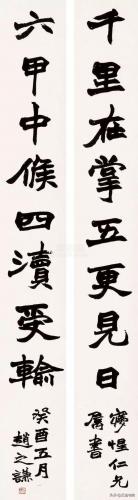 千里在掌五更見日
夢惺仁兄
屬書
六甲中候四瀆受輸
癸酉五月
趙之謙